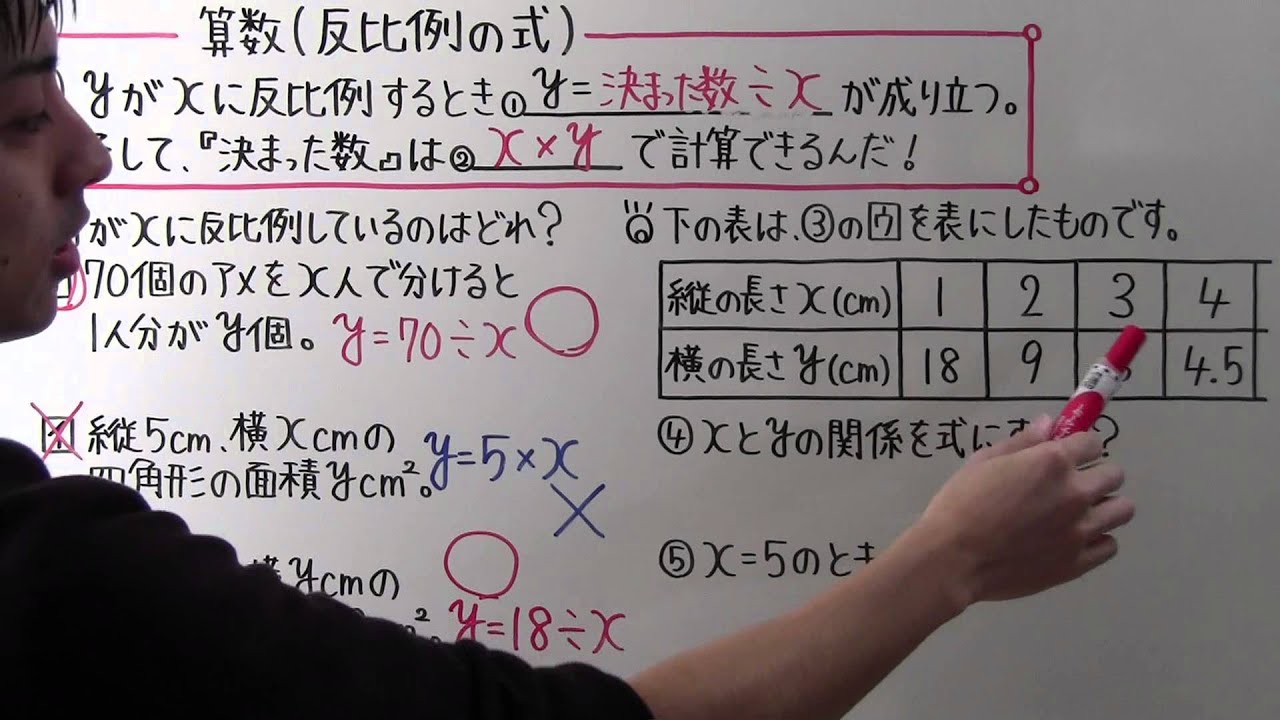 算数(反比例の式)
yがxに反比例するとき①y=決まった数÷xが成り立つ。
して、『決まった数』は②x×yで計算できるんだ!
がxに反比例しているのはどれ?
70個のアメをx人で分けると
1人分がy個。y=70÷x
イ 縦5cm、横xcmの
四角形の面積ycm²。y=5×x
横ycmの
cm²。y=18÷x
下の表は、③のウを表にしたものです。
縦の長さx(cm) 1 2 3 4
横の長さy(cm) 18 9 4.5
④xとyの関係を式に ?
⑤x=5のとき